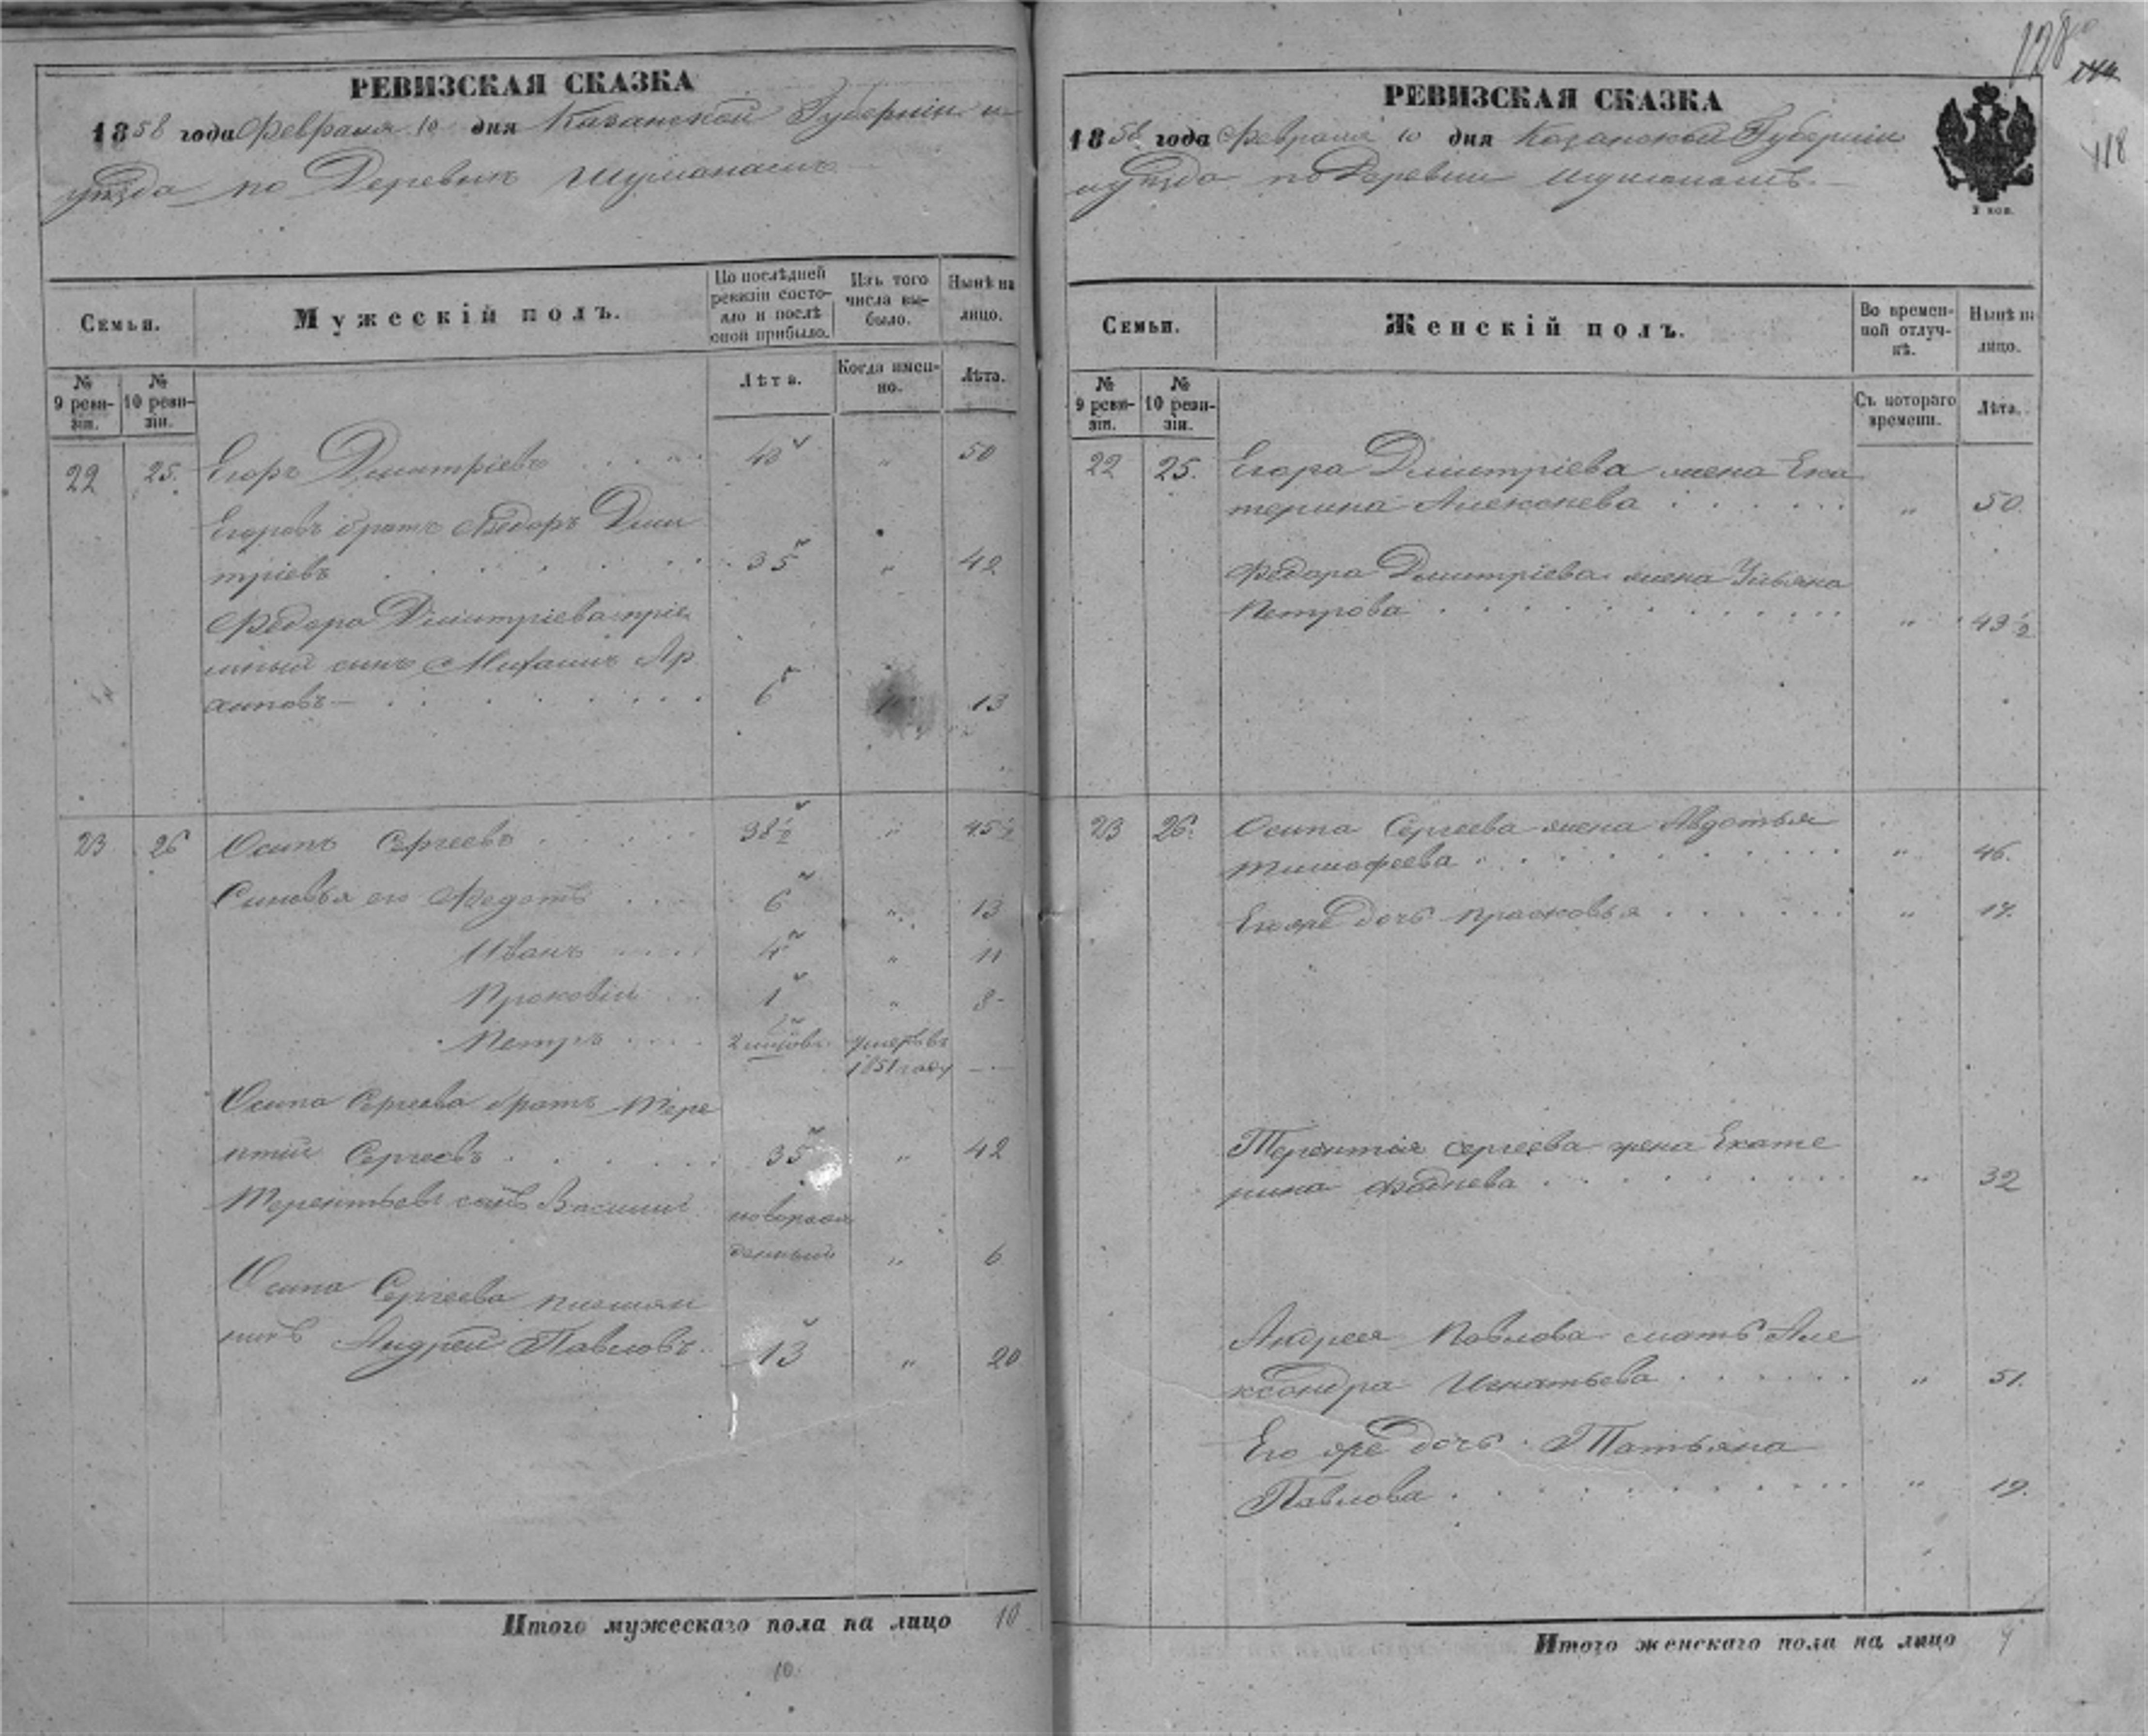 РЕВИЗСКАЯ СКАЗКА
1858 года Февраля 10 дня Казанской Губерніи и
уѣзда по Деревнѣ
Семьи.
Мужескій полъ.
По послѣдней ревизіи состояло и послѣ оной прибыло.
Изъ того числа выбыло.
Нынѣ на лицо.
№ 9 ревизіи.
№ 10 ревизіи.
Лѣта.
Когда именно.
Лѣта.
22 25. Егоръ Дмитріевъ 43 " 50
Егоровъ братъ Ѳедоръ Дми
тріевъ 35 " 42
Федора Дмитріева пріе
мный сынъ Михаилъ Ар
хиповъ 6 13
23 26 Осипъ Сергеевъ 38½ " 45½
Сыновья его Федотъ 6 " 13
Иванъ 4 " 11
Прокофій 1 " 8
Петръ 2 умеръ въ
1851 году —
Осипа Сергеева братъ Тере
нтій Сергеевъ 35 " 42
Терентьевъ сынъ Василий новорож
денный " 6
Осипа Сергеева племян
никъ Андрей Павловъ 13 " 20
Итого мужескаго пола на лицо 10
10
128
118
РЕВИЗСКАЯ СКАЗКА
1858 года Февраля 10 дня Казанской Губерніи
и уѣзда по Деревни
2 коп.
Семьи.
Женскій полъ.
Во временной отлучкѣ.
Нынѣ на лицо.
№ 9 ревизіи.
№ 10 ревизіи.
Съ котораго времени.
Лѣта.
22 25. Егора Дмитріева жена Ека
терина Алексеева " 50.
Федора Дмитріева жена Ульяна
Петрова " 49½
23 26. Осипа Сергеева жена Авдотья
Тимофеева " 46.
Его же дочь Прасковья " 17.
Терентія Сергеева жена Екате
рина Фадѣева " 32
Андрея Павлова мать Але
ксандра Игнатьева " 51.
Его же дочь Татьяна
Павлова " 19.
Итого женскаго пола на лицо